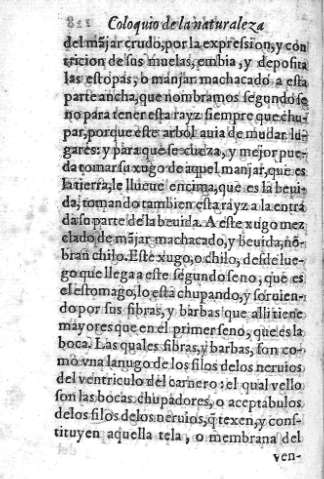 Coloquio de la naturaleza
del mājar crudo, por la expression, y con
tricion de sus muelas, embia, y deposita
las estopas, o manjar machacado a esta
parte ancha, que nombramos segundo se
no para tener esta rayz siempre que chu-
par, porque este arbol auia de mudar lu-
gares: y para que se cueza, y mejor pue-
da tomar su xugo de aquel manjar, que es
la tierra, le llueue encima, que es la beui-
da, tomando tambien esta rayz a la entra
da su parte de la beuida. A este xugo mez
clado de mājar machacado, y beuida, nō-
bran chilo. Este xugo, o chilo, desde lue-
go que llega a este segundo seno, que es
el estomago, lo està chupando, y soruien-
do por sus fibras, y barbas que alli tiene
mayores que en el primer seno, que es la
boca. Las quales fibras, y barbas, son co-
mo vna lanugo de los filos de los neruios
del ventriculo del carnero: el qual vello
son las bocas chupadores, o aceptabulos
de los filos de los neruios, q̄ texen, y const-
tituyen aquella tela, o membrana del
ven-